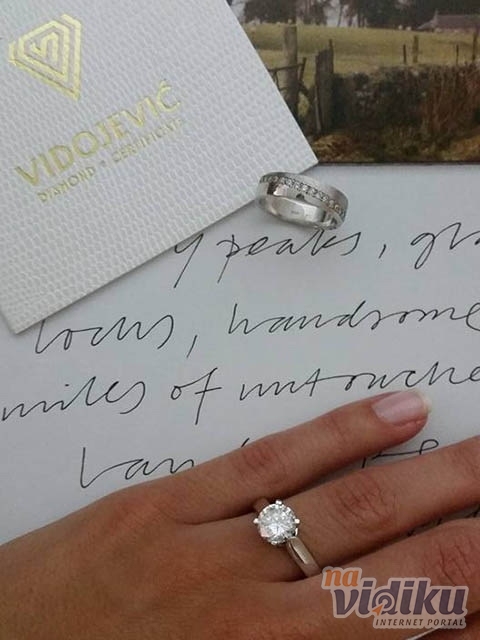 VIDOJEVIĆ
DIAMOND • CERTIFICATE
y peaks,
lochs, handsome
miles of untouche
na
vidiku
INTERNET PORTAL